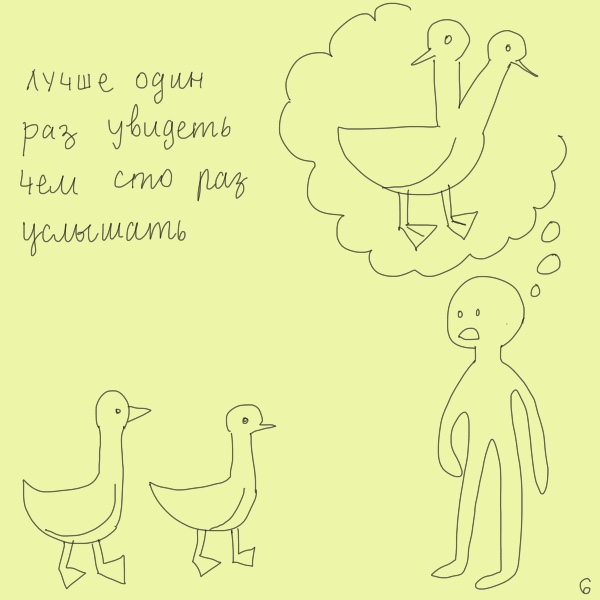 лучше один
раз увидеть
чем сто раз
услышать
6